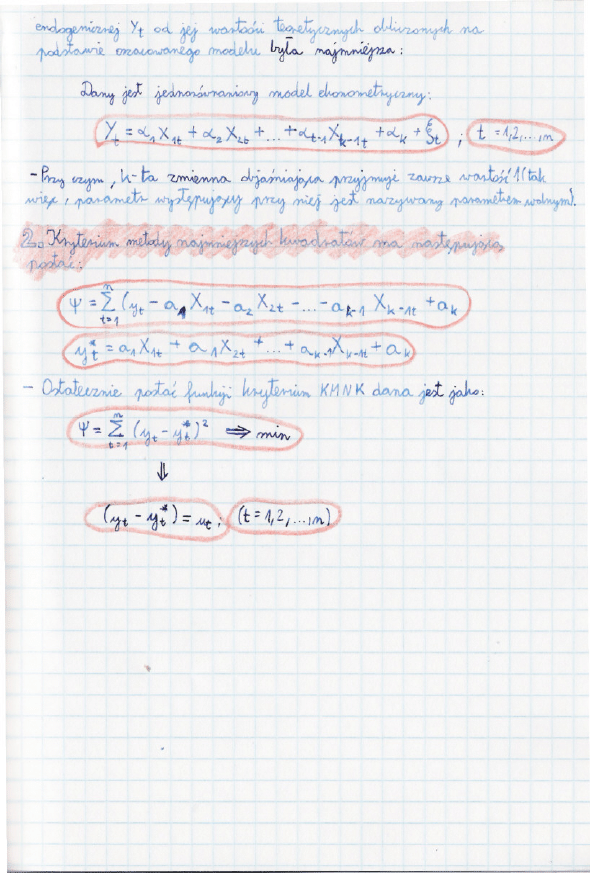 endogenicznej Yt od jej wartości teoretycznych obliczonych na
podstawie oszacowanego modelu była najmniejsza:
Dany jest jednorównaniowy model ekonometryczny:
Yt = α1 X1t + α2 X2t + ... + αt-1 Xk-1t + αk + ξt ; t = 1,2,...,n
- Przy czym, k-ta zmienna objaśniająca przyjmuje zawsze wartość 1 (tak
więc, parametr występujący przy niej jest nazywany parametrem wolnym).
2. Kryterium metody najmniejszych kwadratów ma następującą
postać:
Ψ = Σ n t=1 (yt - a1 X1t - a2 X2t - ... - ak-1 Xk-1t + ak
yt* = a1 X1t + a1 X2t + ... + ak-1 Xk-1t + ak
- Ostatecznie postać funkcji kryterium KMNK dana jest jako:
Ψ = Σ n t=1 (yt - yt*)² ⇒ min
⇓
(yt - yt*) = ut; (t = 1,2,...,n)